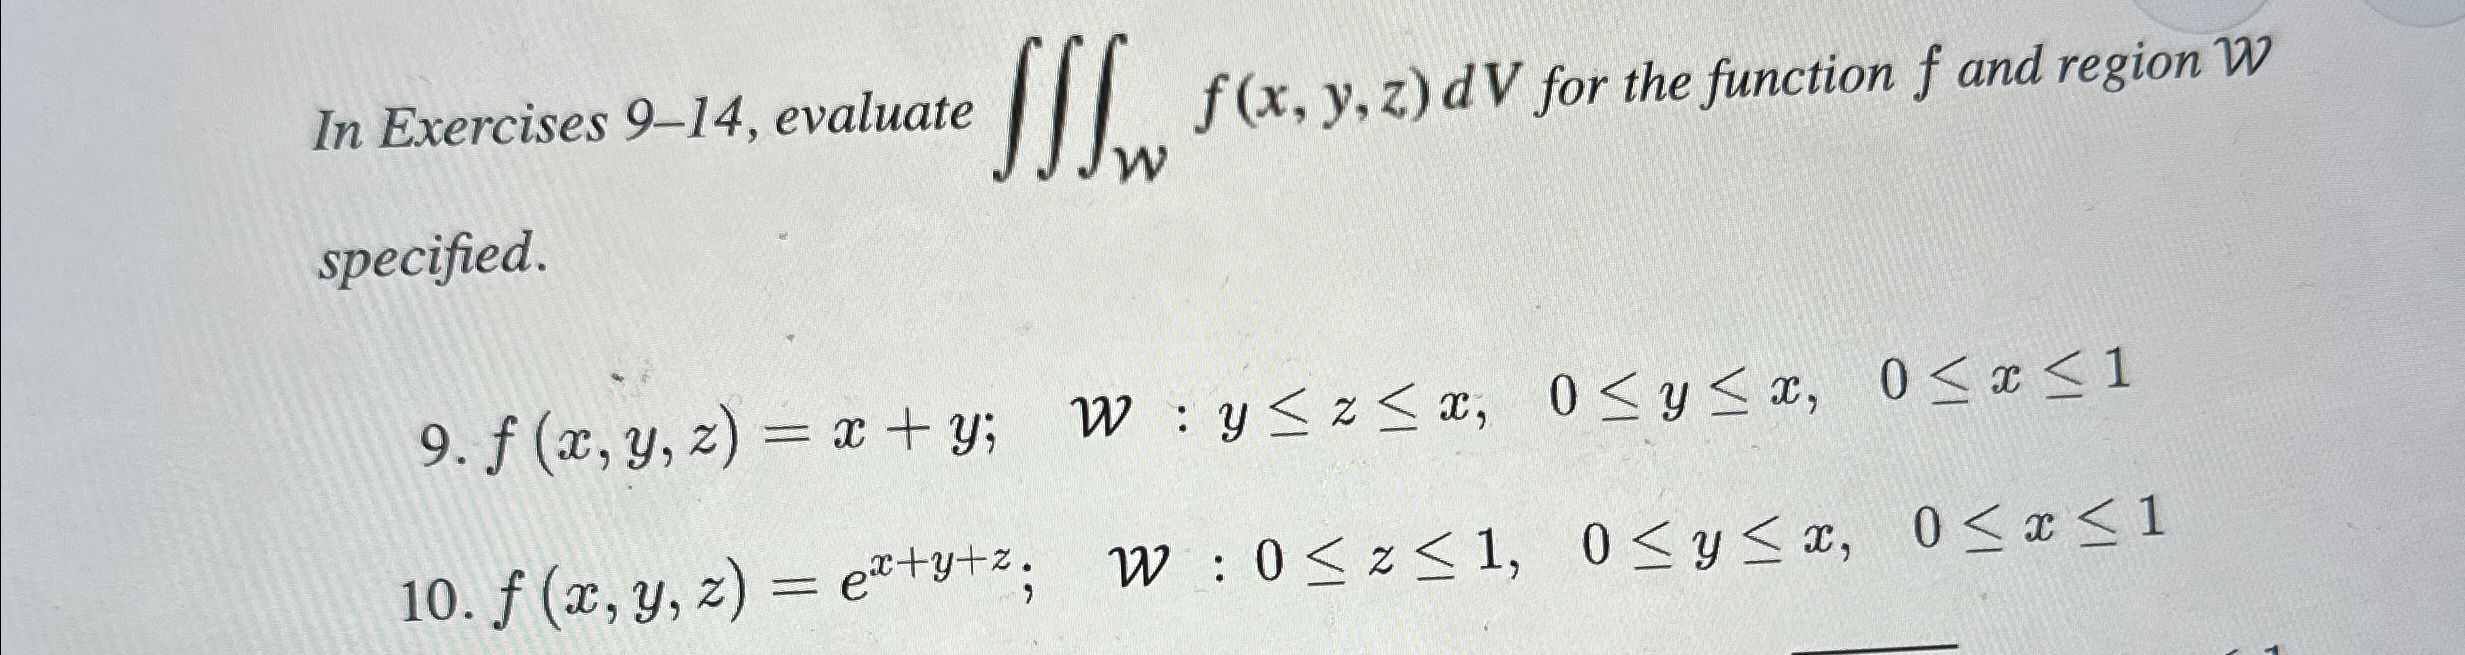 In Exercises 9–14, evaluate ∭_W f(x, y, z) dV for the function f and region W
specified.
9. f(x, y, z) = x + y; W : y ≤ z ≤ x, 0 ≤ y ≤ x, 0 ≤ x ≤ 1
10. f(x, y, z) = e^{x+y+z}; W : 0 ≤ z ≤ 1, 0 ≤ y ≤ x, 0 ≤ x ≤ 1